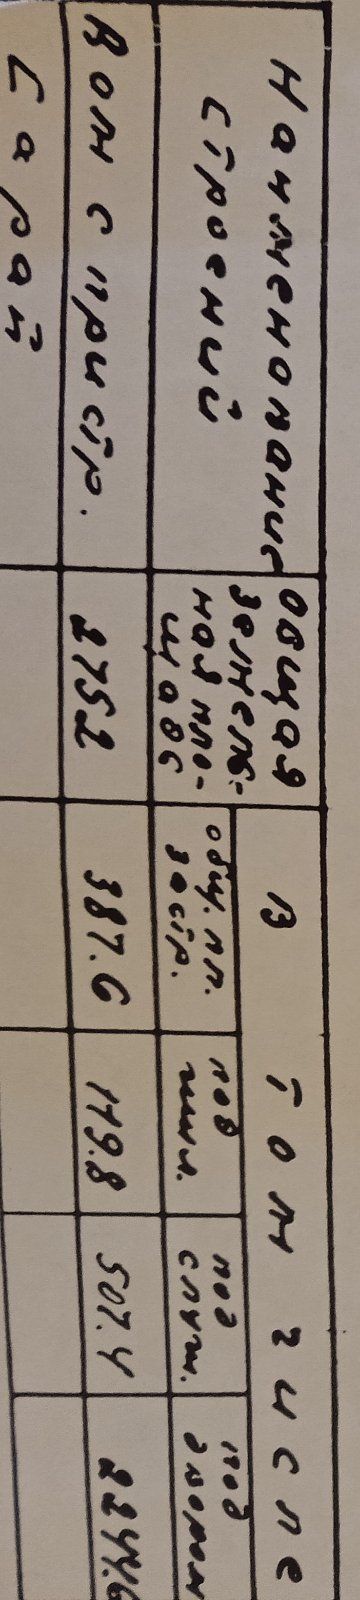 Наименование
строений
Общая
земель-
ная пло-
щадь
В том числе
общ. пл.
застр.
под
жил.
под
служ.
под
двором
Дом с пристр.
2752
387.6
119.8
507.4
2244.6
Сарай